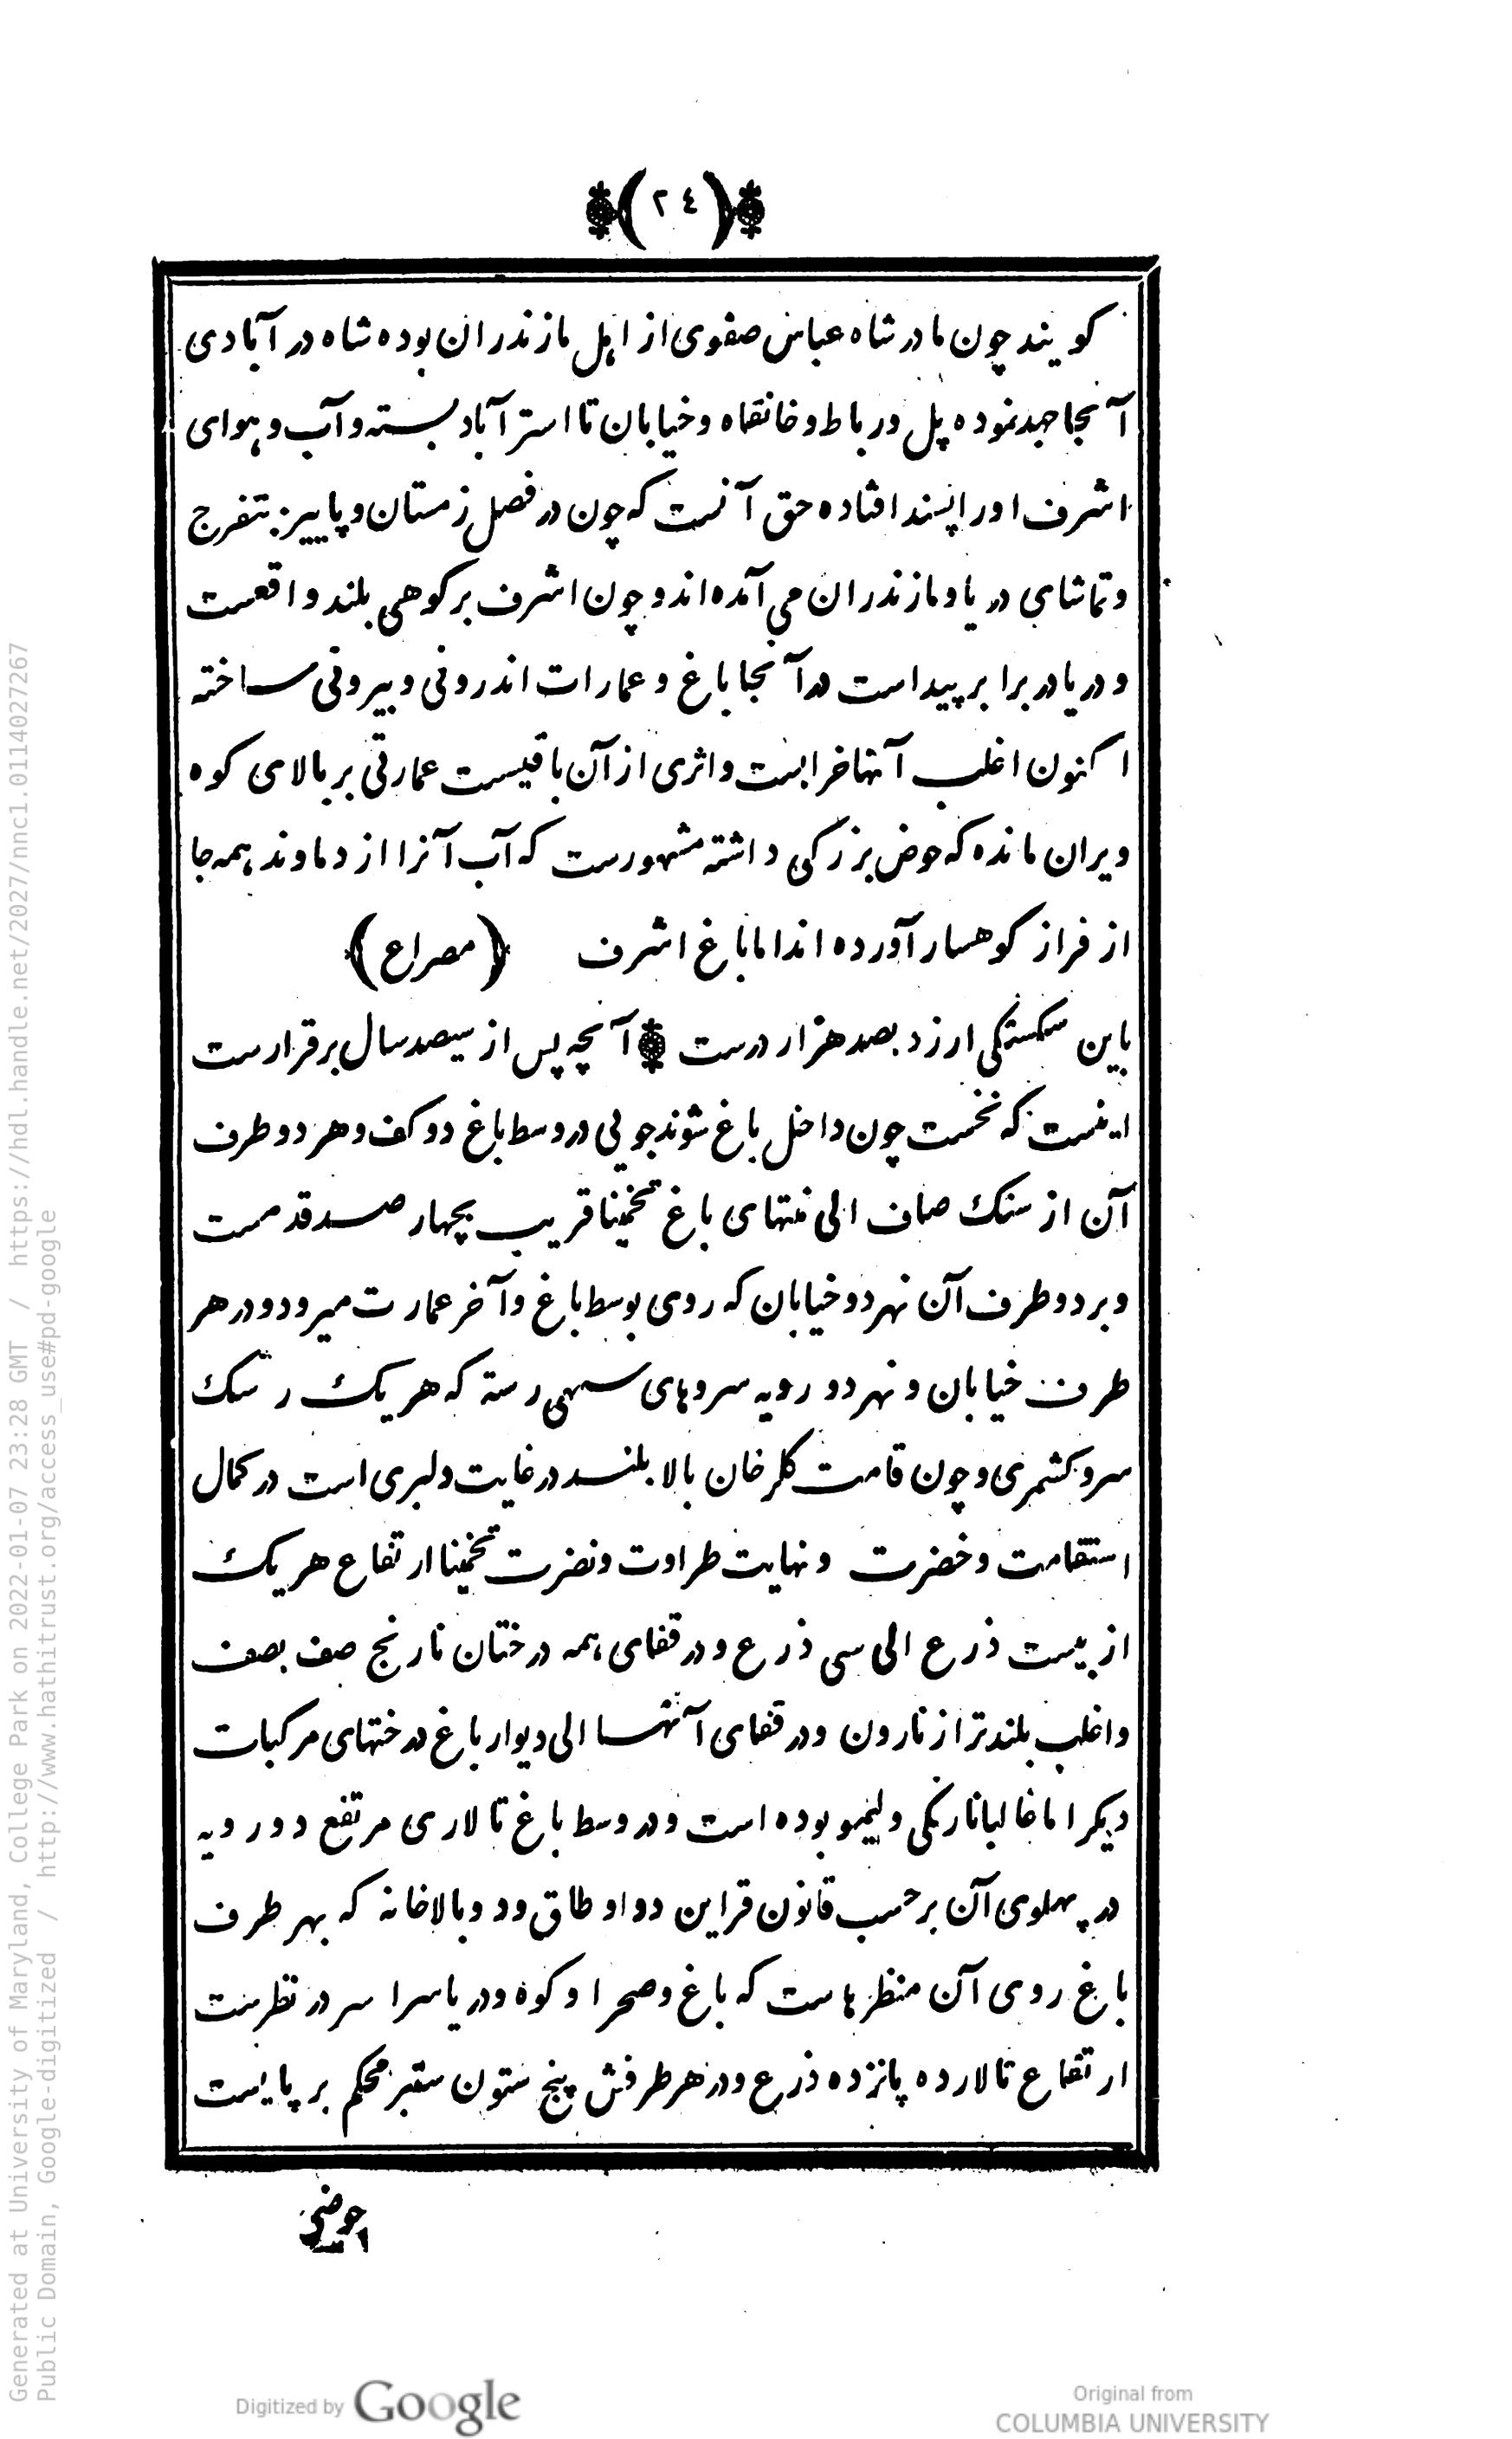 (٢٤)
کویند چون مادر شاه عباس صفوی از اهل مازندران بوده شاه در آبادی
آنجا جهد نموده پل و رباط و خانقاه و خیابان تا استرآباد بسته و آب و هوای
اشرف او را پسند افتاده حق آنست که چون در فصل زمستان و پاییز بتفرج
و تماشای دریا و مازندران می آمده‌اند و چون اشرف بر کوهی بلند واقعست
و دریا در برابر پیداست در آنجا باغ و عمارات اندرونی و بیرونی ساخته
اکنون اغلب آنها خرابست و اثری از آن باقیست عمارتی بر بالای کوه
ویران مانده که حوض بزرکی داشته مشهورست که آب آنرا از دماوند همه جا
از فراز کوهسار آورده اند اما باغ اشرف (مصراع)
باین شکستکی ارزد بصد هزار درست آنچه پس از سیصد سال برقرارست
اینست که نخست چون داخل باغ شوند جویی در وسط باغ دو کف و هر دو طرف
آن از سنک صاف الی منتهای باغ تخمینا قریب بچهار صد قدمست
و بر دو طرف آن نهر دو خیابان که روی بوسط باغ و آخر عمارت میرود و در هر
طرف خیابان و نهر دو رویه سروهای سهی رسته که هر یک رشک
سرو کشمری و چون قامت کلرخان بالا بلند در غایت دلبری است در کمال
استقامت و خضرت و نهایت طراوت و نضرت تخمینا ارتفاع هر یک
از بیست ذرع الی سی ذرع و در قفای همه درختان نارنج صف بصف
و اغلب بلندتر از نارون و در قفای آنها الی دیوار باغ درختهای مرکبات
دیکر اما غالبا نارنکی و لیمو بوده است و در وسط باغ تالاری مرتفع دو رویه
در پهلوی آن برحسب قانون قراین دو اوطاق و دو بالاخانه که بهر طرف
باغ روی آن منظرهاست که باغ و صحرا و کوه و دریا سراسر در نظرست
ارتفاع تالار ده پانزده ذرع و در هر طرفش پنج ستون ستبر محکم بر پایست
حوضی
Digitized by Google
Original from
COLUMBIA UNIVERSITY
Generated at University of Maryland, College Park on 2022-01-07 23:28 GMT / https://hdl.handle.net/2027/nnc1.0114027267
Public Domain, Google-digitized / http://www.hathitrust.org/access_use#pd-google